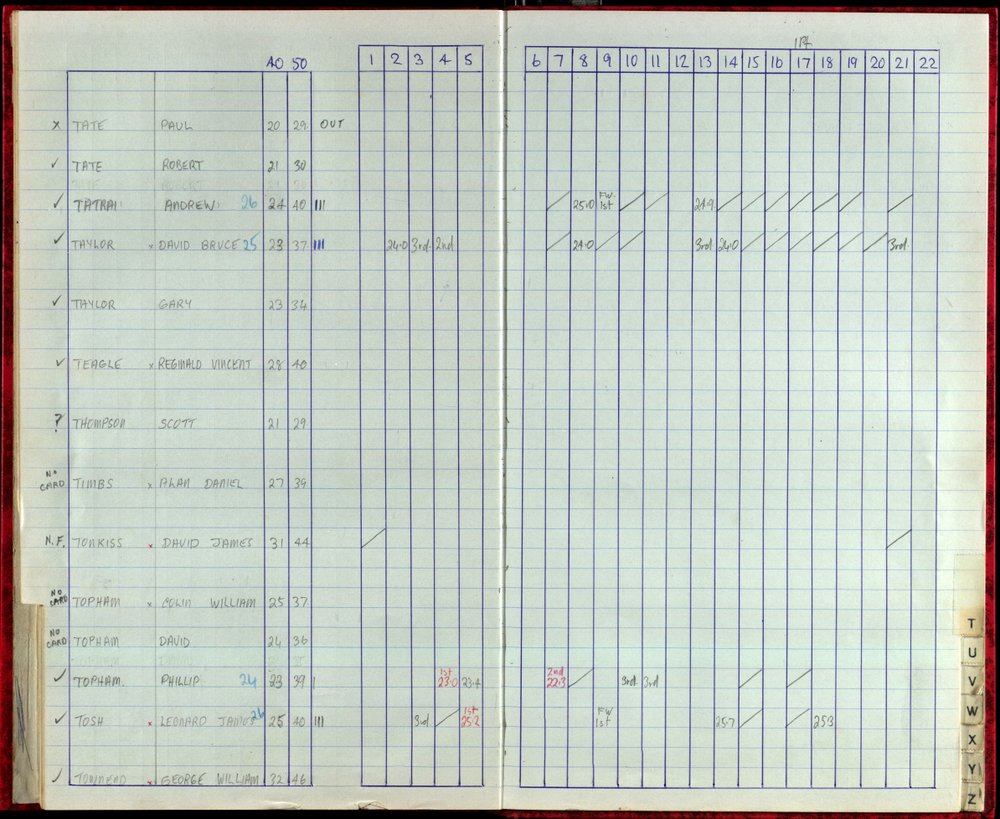 1 Pt
40 50 1 2 3 4 5 6 7 8 9 10 11 12 13 14 15 16 17 18 19 20 21 22
x TATE PAUL 20 29 OUT
✓ TATE ROBERT 21 30
✓ TATRAI ANDREW 26 24 40 III / 25.0 FW 1st / / 24.9 / / / / / / /
✓ TAYLOR x DAVID BRUCE 25 23 37 III 24.0 3rd 2nd / 24.0 / / 3rd 24.0 / / / / / / 3rd
✓ TAYLOR GARY 23 34
✓ TEAGLE x REGINALD VINCENT 28 40
? THOMPSON SCOTT 21 29
NO CARD TIMBS x ALAN DANIEL 27 39
N.F. TONKISS x DAVID JAMES 31 44 / /
NO CARD TOPHAM x COLIN WILLIAM 25 37
NO CARD TOPHAM DAVID 24 36
✓ TOPHAM. PHILLIP 24 23 39 I 1st 23.0 23.4 2nd 22.3 / 3rd 3rd / /
✓ TOSH x LEONARD JAMES 26 25 40 III 3rd / 1st 25.2 FW 1st 25.7 / / 25.3
✓ TOWNEND x GEORGE WILLIAM 32 46
T
U
V
W
X
Y
Z